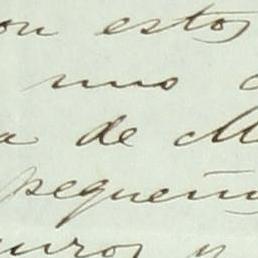 on estos
uno
a de M
pequeñ
uros y